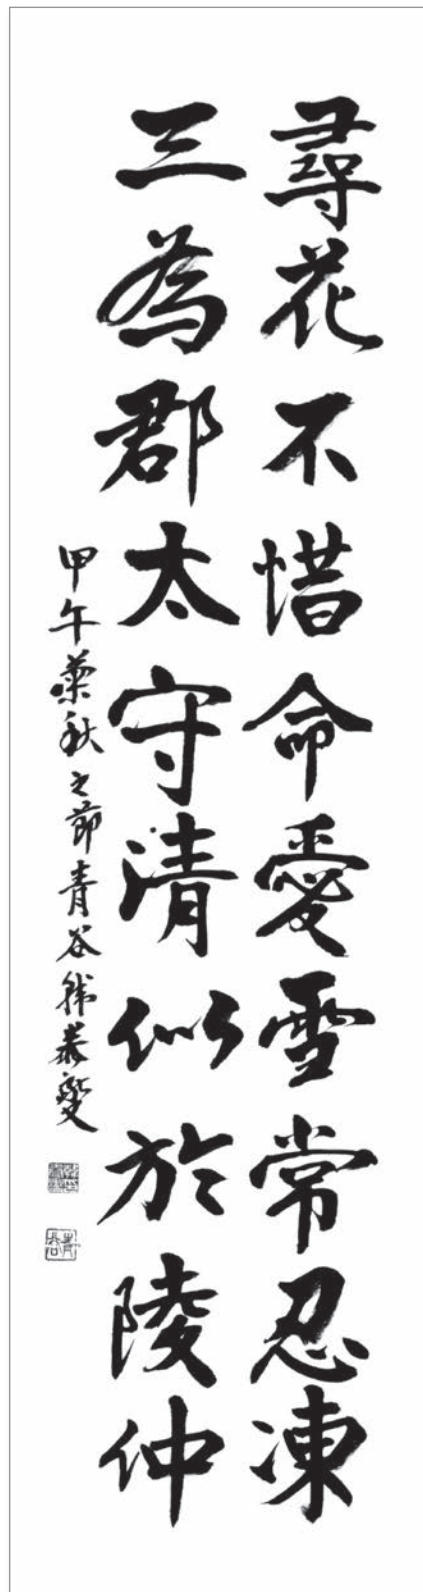 尋花不惜命愛雪常忍凍
三為郡太守清似於陵仲
甲午菊秋之節青谷韓恭燮
青谷